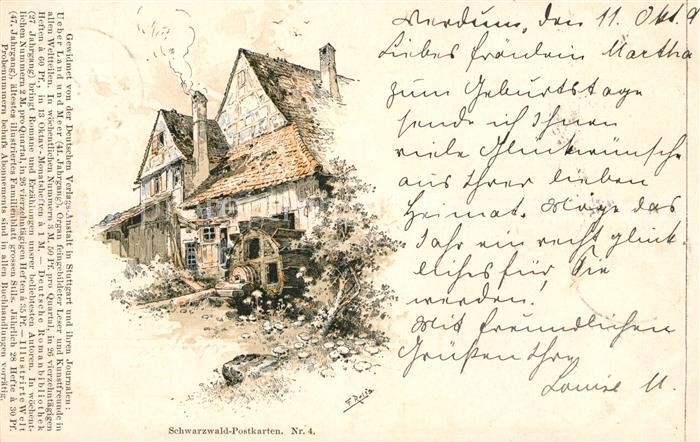 Gewidmet von der Deutschen Verlags-Anstalt in Stuttgart und ihren Journalen:
Ueber Land und Meer (44. Jahrgang), Organ feingebildeter Leser und Kunstfreunde in
allen Weltteilen. In wöchentlichen Nummern 3 M. 50 Pf. pro Quartal, in 26 vierzehntägigen
Heften à 60 Pf., in 13 Oktav-Monatsheften à 1 M. — Deutsche Romanbibliothek
(27. Jahrgang) bringt Romane und Erzählungen unsrer beliebtesten Autoren. In wöchent-
lichen Nummern 2 M. pro Quartal, in 26 vierzehntägigen Heften à 35 Pf. — Illustrirte Welt
(47. Jahrgang), ältestes illustriertes Familienblatt grossen Stils. Jährlich 28 Hefte à 30 Pf.
Probenummern behufs Abonnements sind in allen Buchhandlungen vorrätig.
Werdum, den 11. Okt. 9
Liebes Fräulein Martha
zum Geburtstage
sende ich Ihnen
viele Glückwünsche
aus Ihrer lieben
Heimat. Möge das
Jahr ein recht glück-
liches für Sie
werden.
Mit freundlichen
Grüßen Ihre
Louise U.
Schwarzwald-Postkarten. Nr. 4.